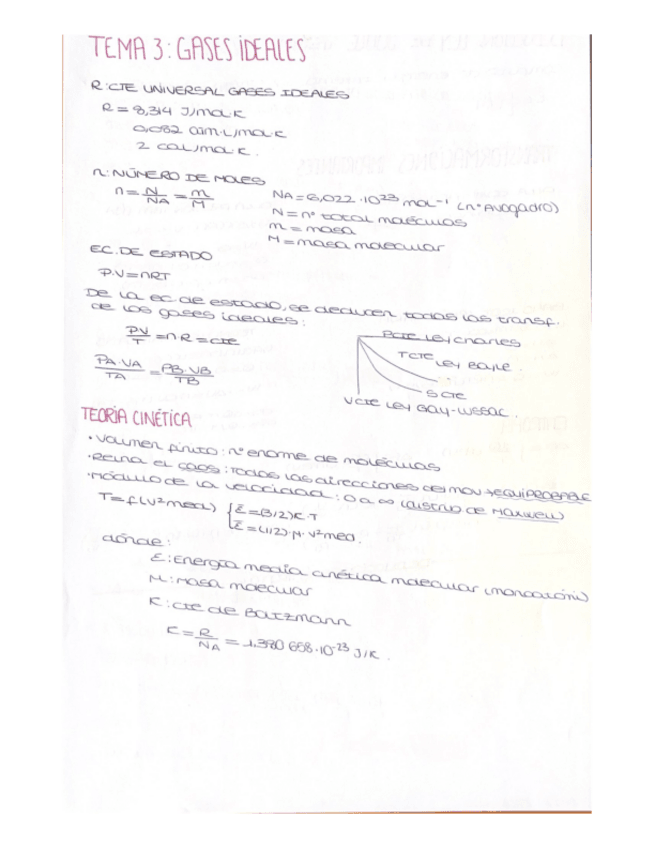 TEMA 3: GASES IDEALES
R: CTE UNIVERSAL GASES IDEALES
R = 8,314 J/mol·K
0,082 atm·L/mol·K
2 cal/mol·K.
n: NÚMERO DE MOLES
n = N/NA = m/M
NA = 6,022·10²³ mol⁻¹ (nº Avogadro)
N = nº total moléculas
m = masa
M = masa molecular
EC. DE ESTADO
P·V = nRT
De la ec. de estado, se deducen todas las transf.
de los gases ideales:
PV/T = n·R = cte
PA·VA/TA = PB·VB/TB
PCTE Ley Charles
TCTE Ley Boyle.
SCTE
VCTE Ley Gay-Lussac.
TEORÍA CINÉTICA
· Volumen finito: nº enorme de moléculas
· Reina el caos: Todas las direcciones del mov → EQUIPROBABLE
· Módulo de la velocidad: 0 a ∞ (distrib de Maxwell)
T = f(v² med) { Ē = (3/2)K·T
Ē = (1/2)·M·v² med.
dónde:
Ē: Energía media cinética molecular (monoatómi)
M: Masa molecular
K: cte de Boltzmann
K = R/NA = 1.380 658·10⁻²³ J/K.